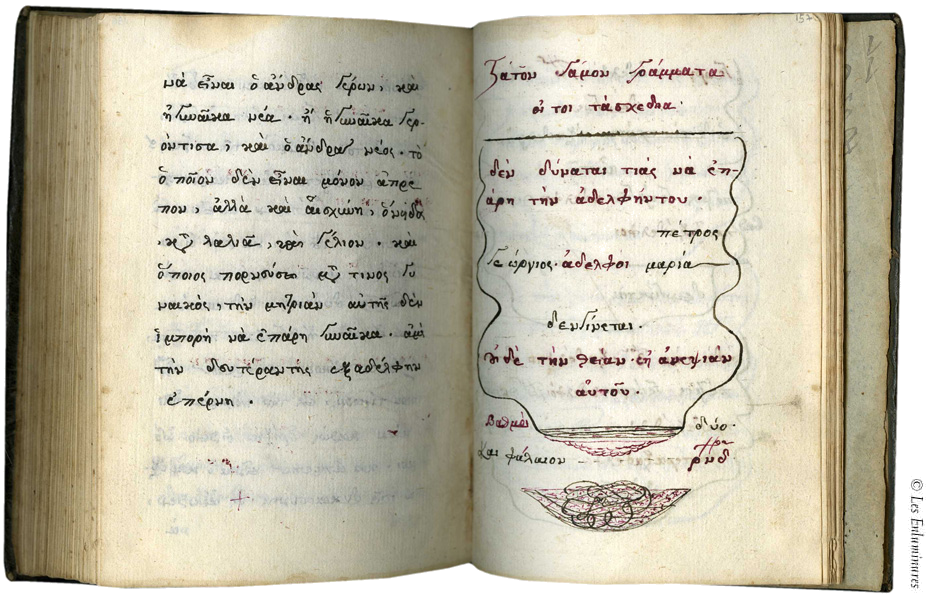 νὰ εἶναι ὁ ἄνδρας γέρων, καὶ
ἡ γυναῖκα νέα · ἢ ἡ γυναῖκα γερ-
όντισα, καὶ ὁ ἄνδρας νέος · τὸ
ὁποῖον δὲν εἶναι μόνον ἄπρε
πον, ἀλλὰ καὶ αἰσχύνη,
λαλιὰ, καὶ γέλιον · καὶ
ὅποιος πορνεύσει τινος γυ
ναικὸς, τὴν μητριὰν αὐτῆς δὲν
ἐμπορῆ νὰ ἐπάρη γυναῖκα ·
τὴν δευτέραν της ἐξαδέλφην
ἐπέρνη ·
157
τῶν γάμον γράμματα
τὰ σχέδια ·
δὲν δύναται τιὰς νὰ ἐπ-
άρη τὴν ἀδελφήν του ·
πέτρος
Γεώργιος · ἀδελφοι μαρία
δεν γίνεται ·
τὴν θείαν · ἢ ἀνεψιὰν
αὐτοῦ ·
βαθμοὶ δύο ·
φάλαιον — ρνδ
© Les Enluminures